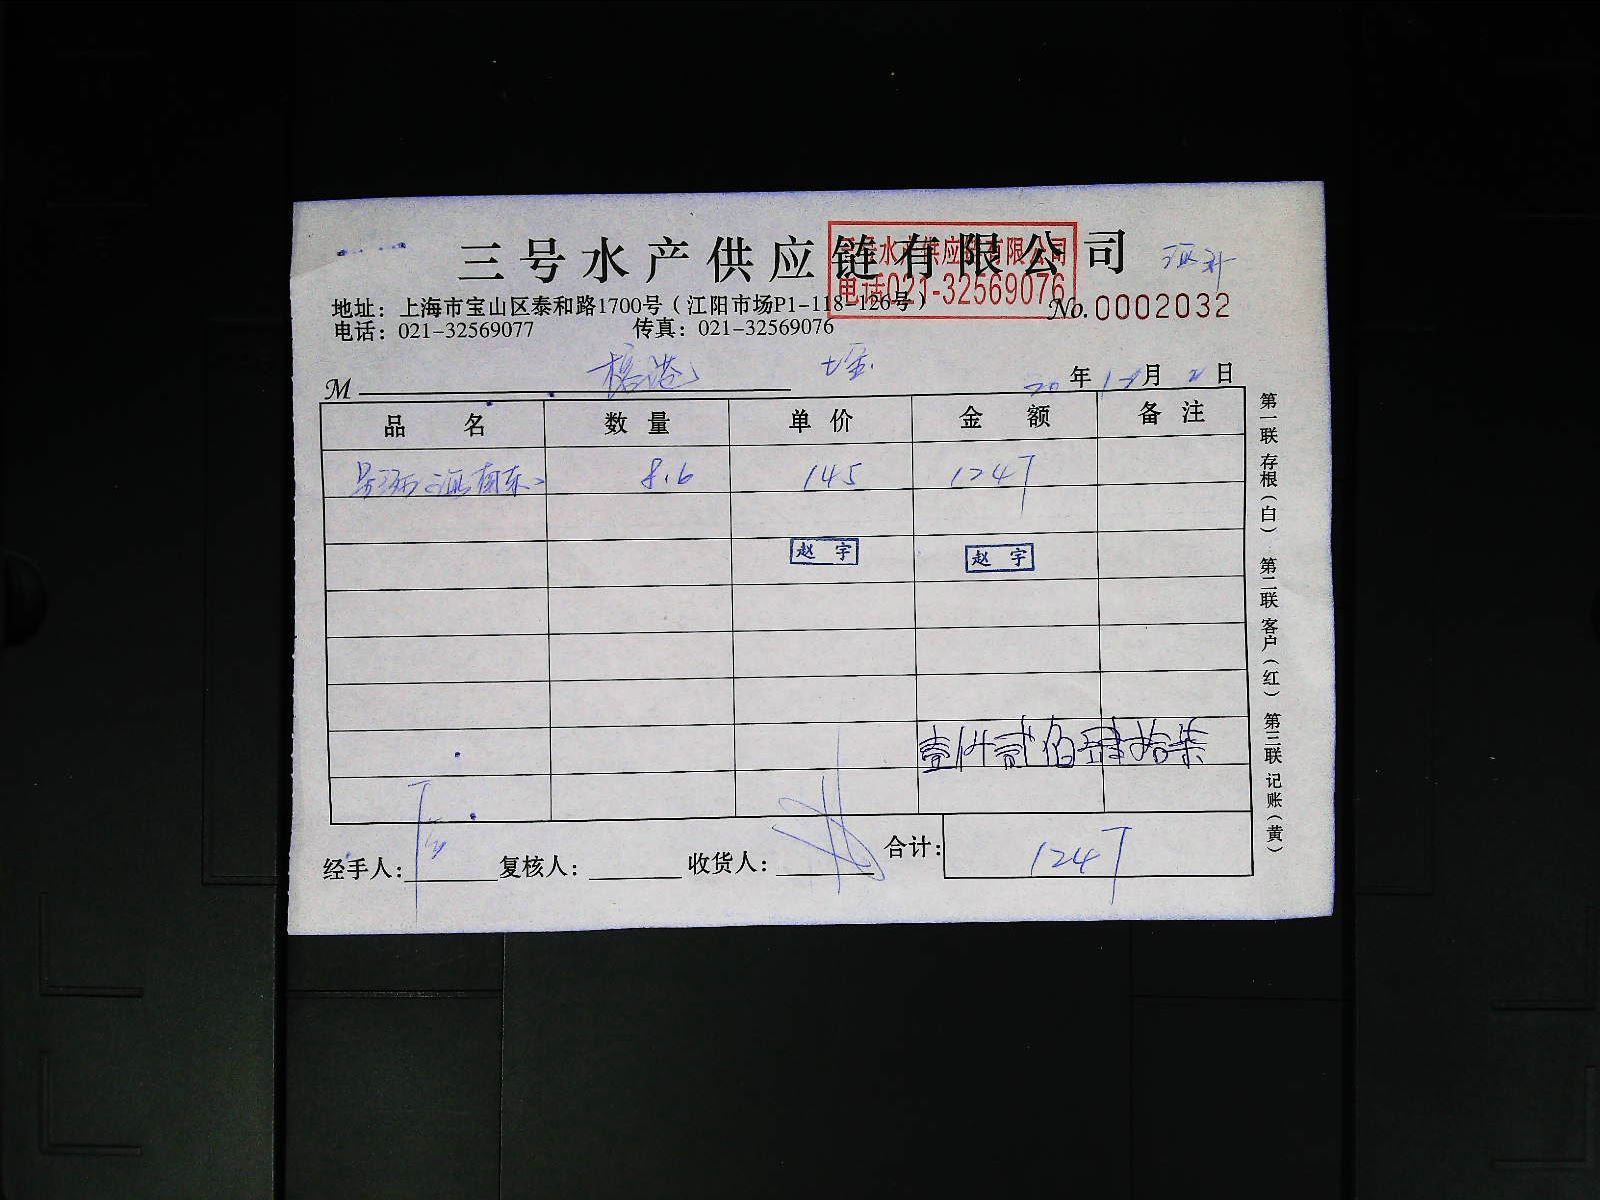 三号水产供应链有限公司
三号水产供应链有限公司
电话021-32569076
地址：上海市宝山区泰和路1700号（江阳市场P1-118-126号）
No.0002032
电话：021-32569077 传真：021-32569076
M
20年 12月 2日
品名 数量 单价 金额 备注
8.6 145 1247
赵宇 赵宇
壹仟贰佰肆拾柒
经手人： 复核人： 收货人： 合计： 1247
第一联 存根（白） 第二联 客户（红） 第三联 记账（黄）